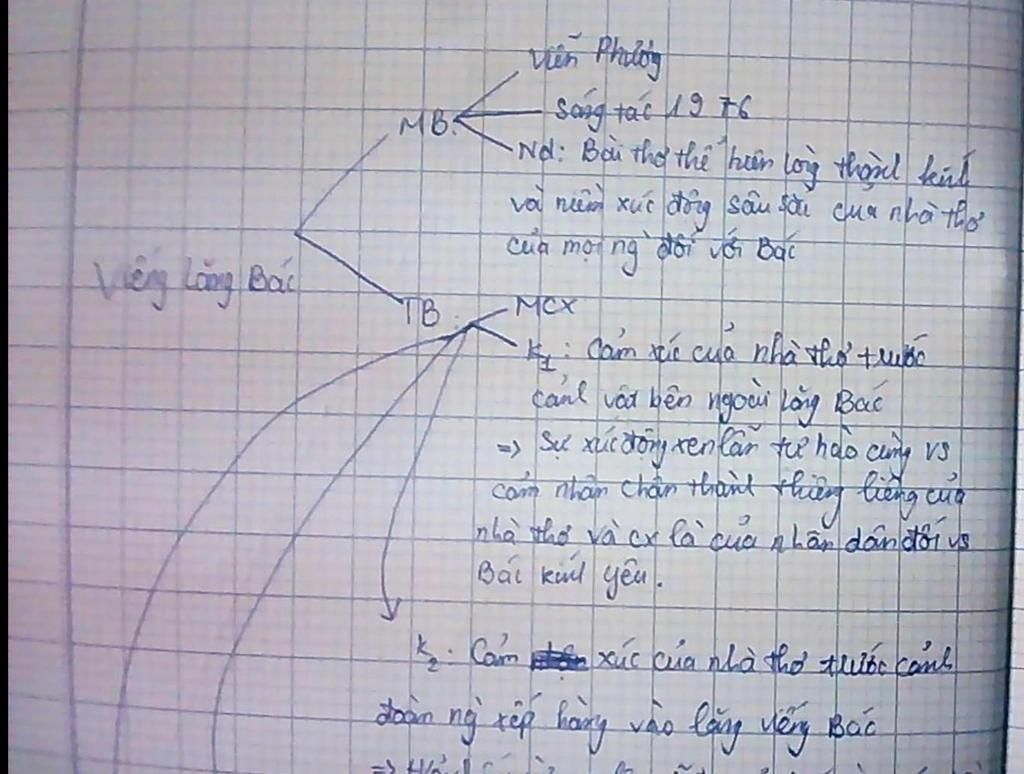 Viễn Phương
MB.
Sáng tác 1976
Nd: Bài thơ thể hiện lòng thành kính
và niềm xúc động sâu sắc của nhà thơ
của mọi ng̀ đối với Bác
Viếng lăng Bác
TB.
MCX
K1: Cảm xúc của nhà thơ trước
cảnh vật bên ngoài lăng Bác
=> Sự xúc động xen lẫn tự hào cùng vs
cảm nhận chân thành thiêng liêng của
nhà thơ và cx là của nhân dân đối vs
Bác kính yêu.
K2: Cảm xúc của nhà thơ trước cảnh
đoàn ng̀ xếp hàng vào lăng viếng Bác